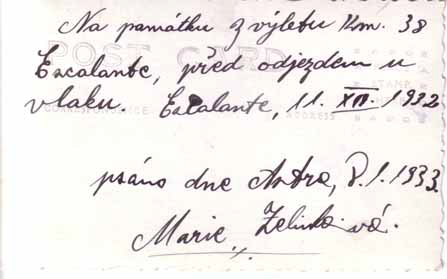 Na památku z výletu Km. 38
POST CARD
Escalante, před odjezdem u
STAMP
vlaku. Escalante, 11. XII. 1932
CORRESPONDENCE
ADDRESS
psáno dne 8.1.1933.
Marie Zelinková.